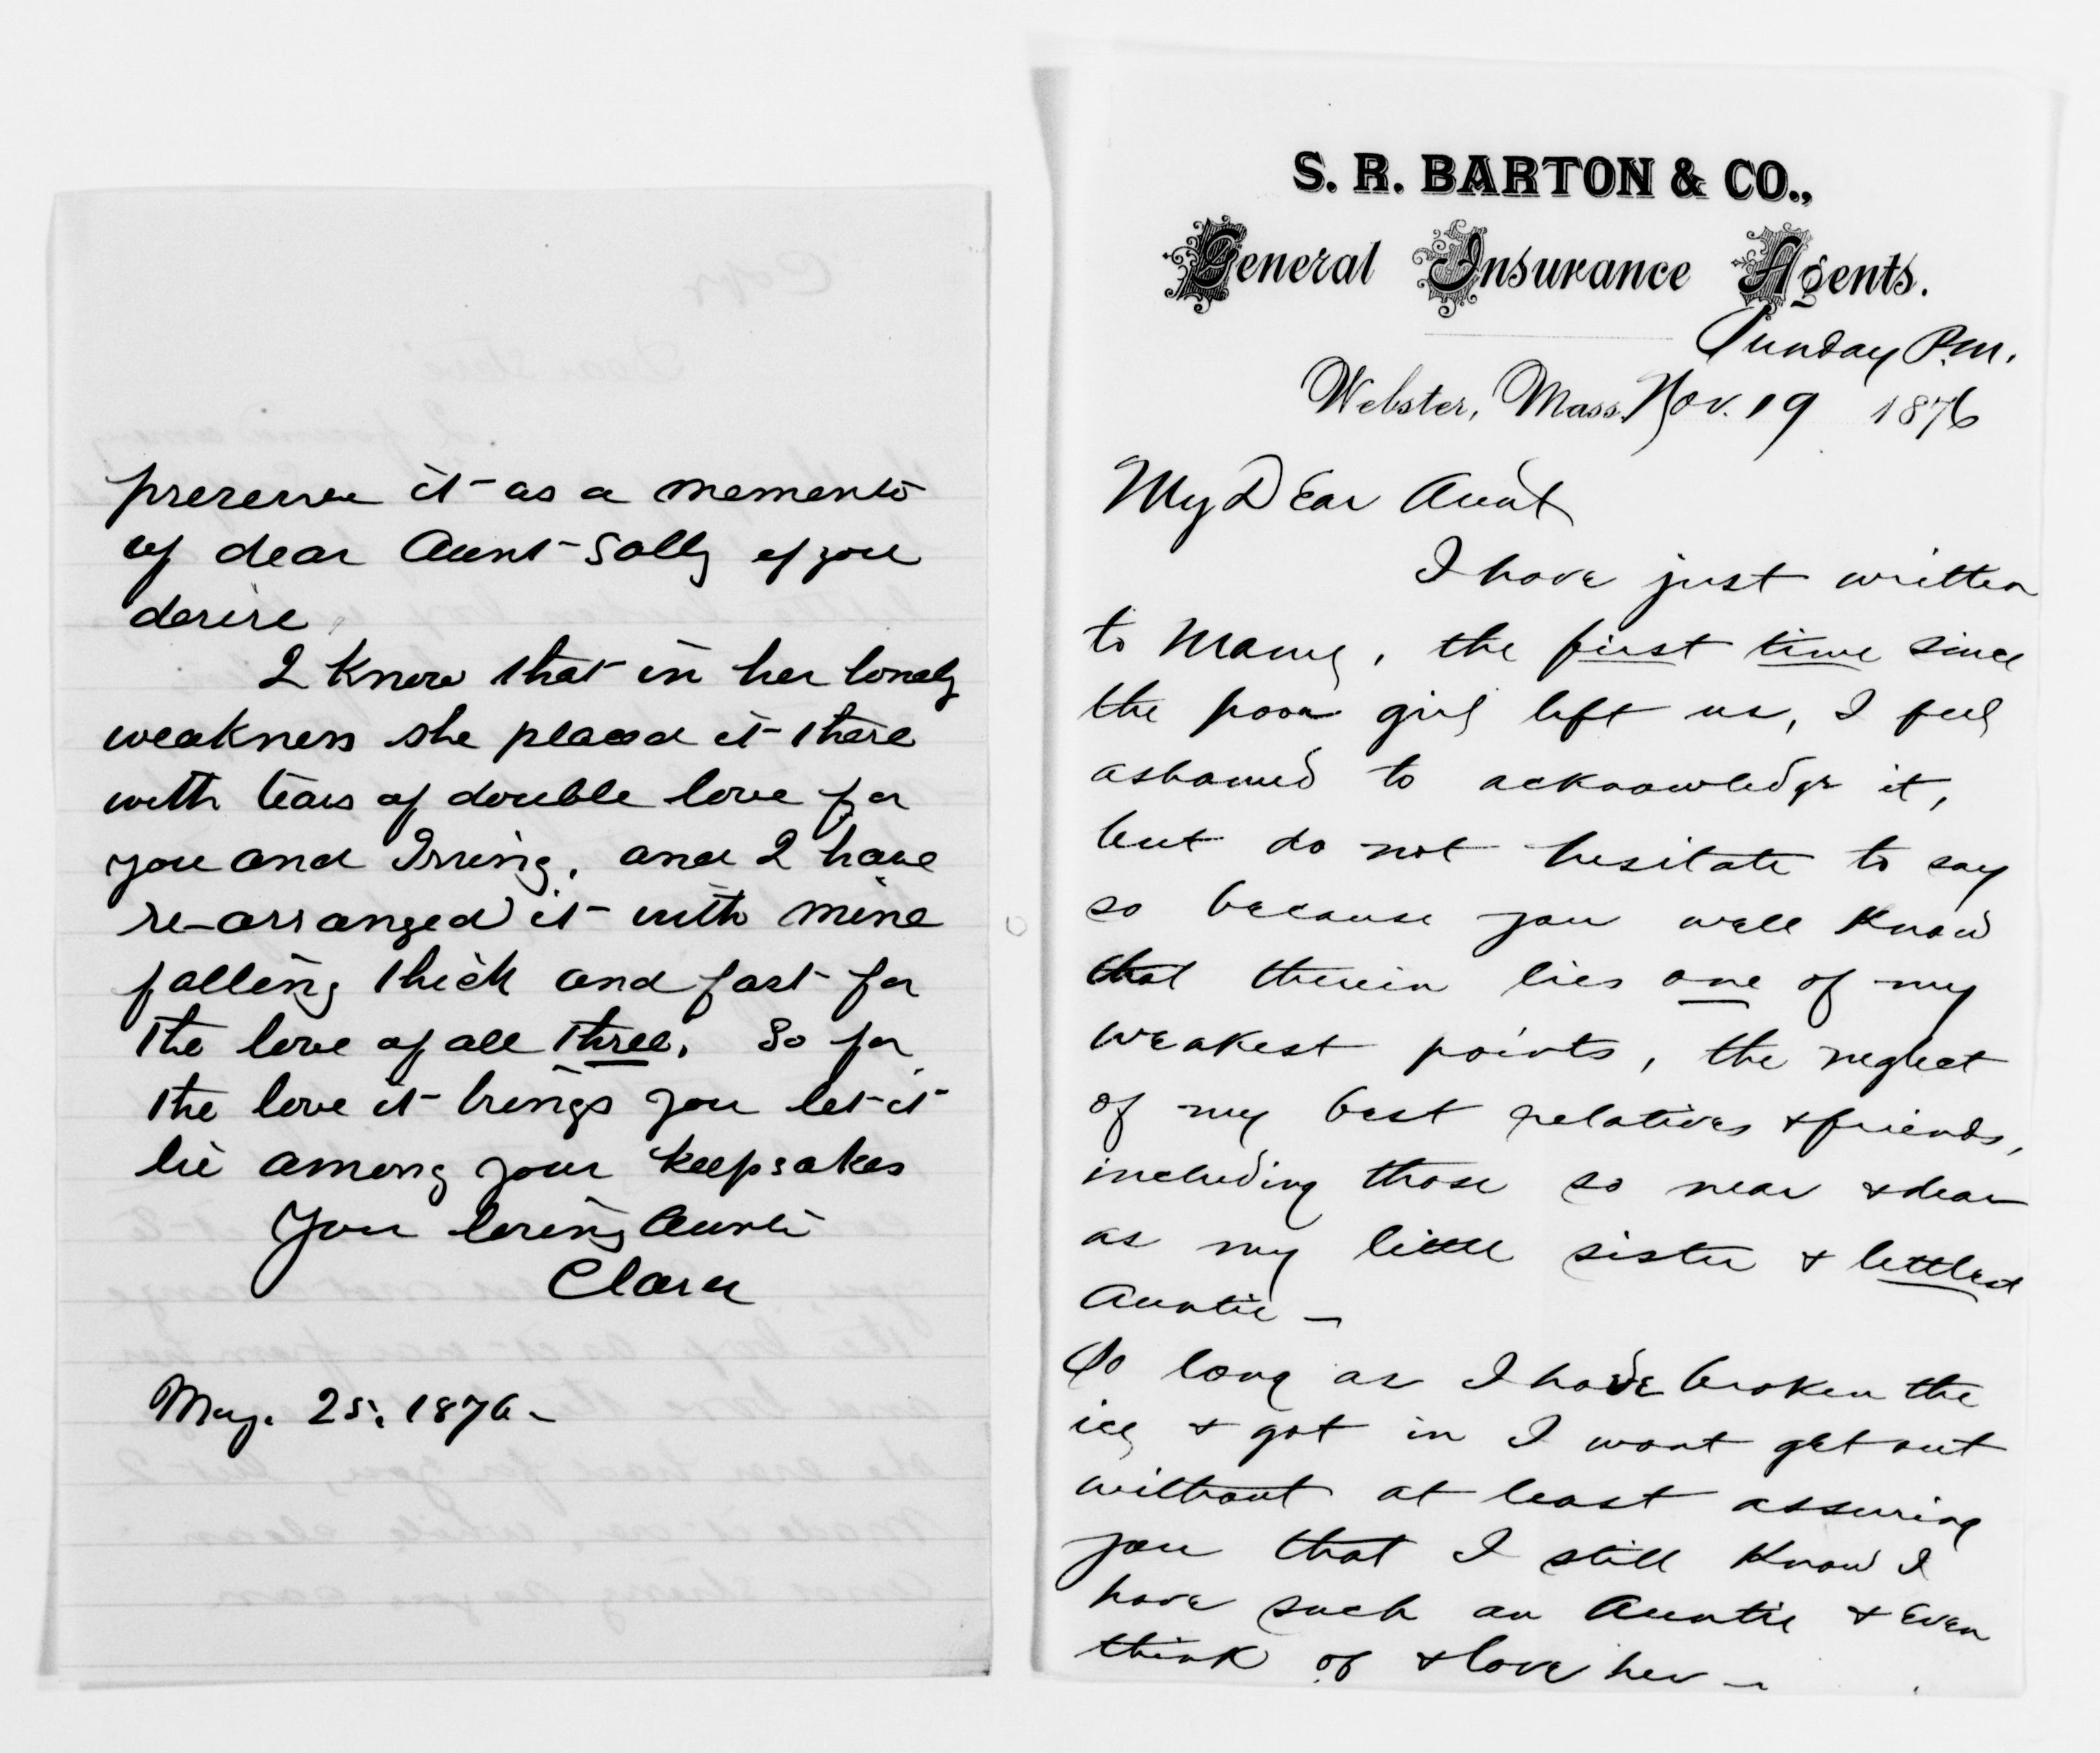 preserve it as a memento
of dear Aunt Sally if you
desire
I know that in her lonely
weakness she placed it there
with tears of double love for
you and Irving, and I have
re-arranged it with mine
falling thick and fast for
the love of all three. So for
the love it brings you let it
lie among your keepsakes
Your loving Auntie
Clara
May. 25, 1876-
S. R. BARTON & CO.,
General Insurance Agents.
Sunday P.M.
Webster, Mass. Nov. 19 1876
My Dear Aunt
I have just written
to Mamy, the first time since
the poor girl left us, I feel
ashamed to acknowledge it,
but do not hesitate to say
so because you well know
that therein lies one of my
weakest points, the neglect
of my best relatives & friends,
including those so near & dear
as my little sister & littlest
Auntie -
So long as I have broken the
ice & got in I wont get out
without at least assuring
you that I still know I
have such an Auntie & even
think of & love her -